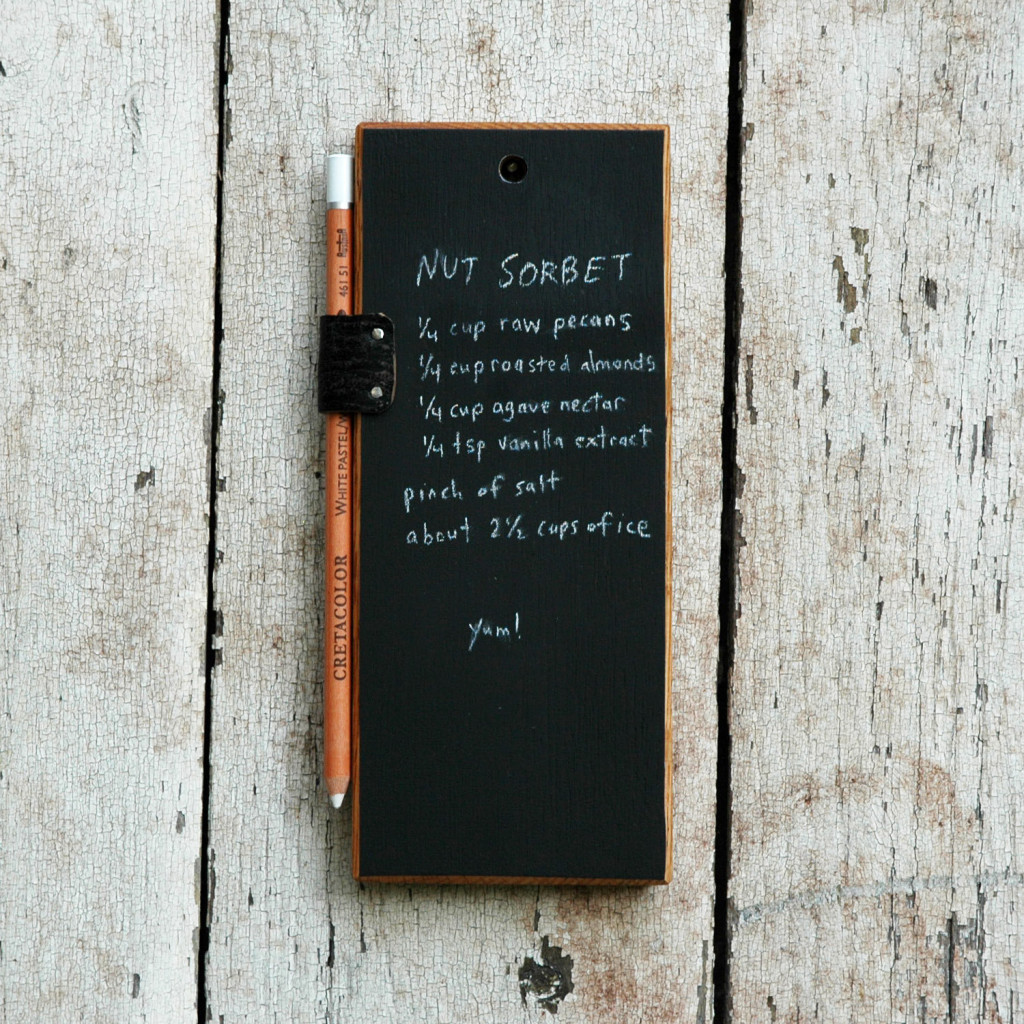 NUT SORBET
1/4 cup raw pecans
1/4 cup roasted almonds
1/4 cup agave nectar
1/4 tsp vanilla extract
pinch of salt
about 2 1/2 cups of ice
yum!
CRETACOLOR WHITE PASTEL/
461 51